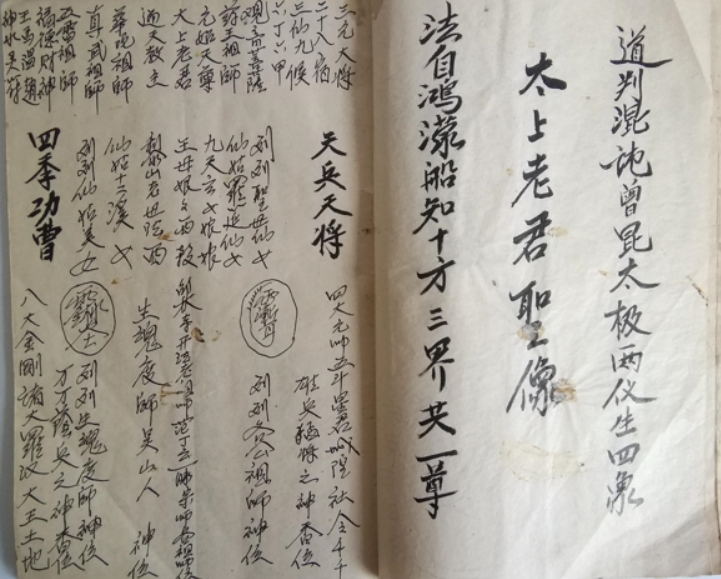 道判混沌曾昆太极两仪生四象
太上老君聖像
法自鴻濛船知十方三界共一尊
三元大将
二十八宿
三仙九候
六丁六甲
观音菩薩
药王祖師
元始天尊
大上老君
通天教主
華佗祖師
真武祖師
五雷祖師
福德財神
王馬温趙
天兵天将
列列聖母仙女
仙姑羅运仙女
九天玄女娘娘
王母娘々
黎山老母
仙姑十二溪女
列列仙姑美女
四季功曹
四大元帅五斗星君城隍社令
雄兵猛将之神香位
列列各公祖師神位
生魂度師吴山人 神位
列列生魂度師神位
万万蔭兵之神香位
八大金剛諸大羅汉大王土地